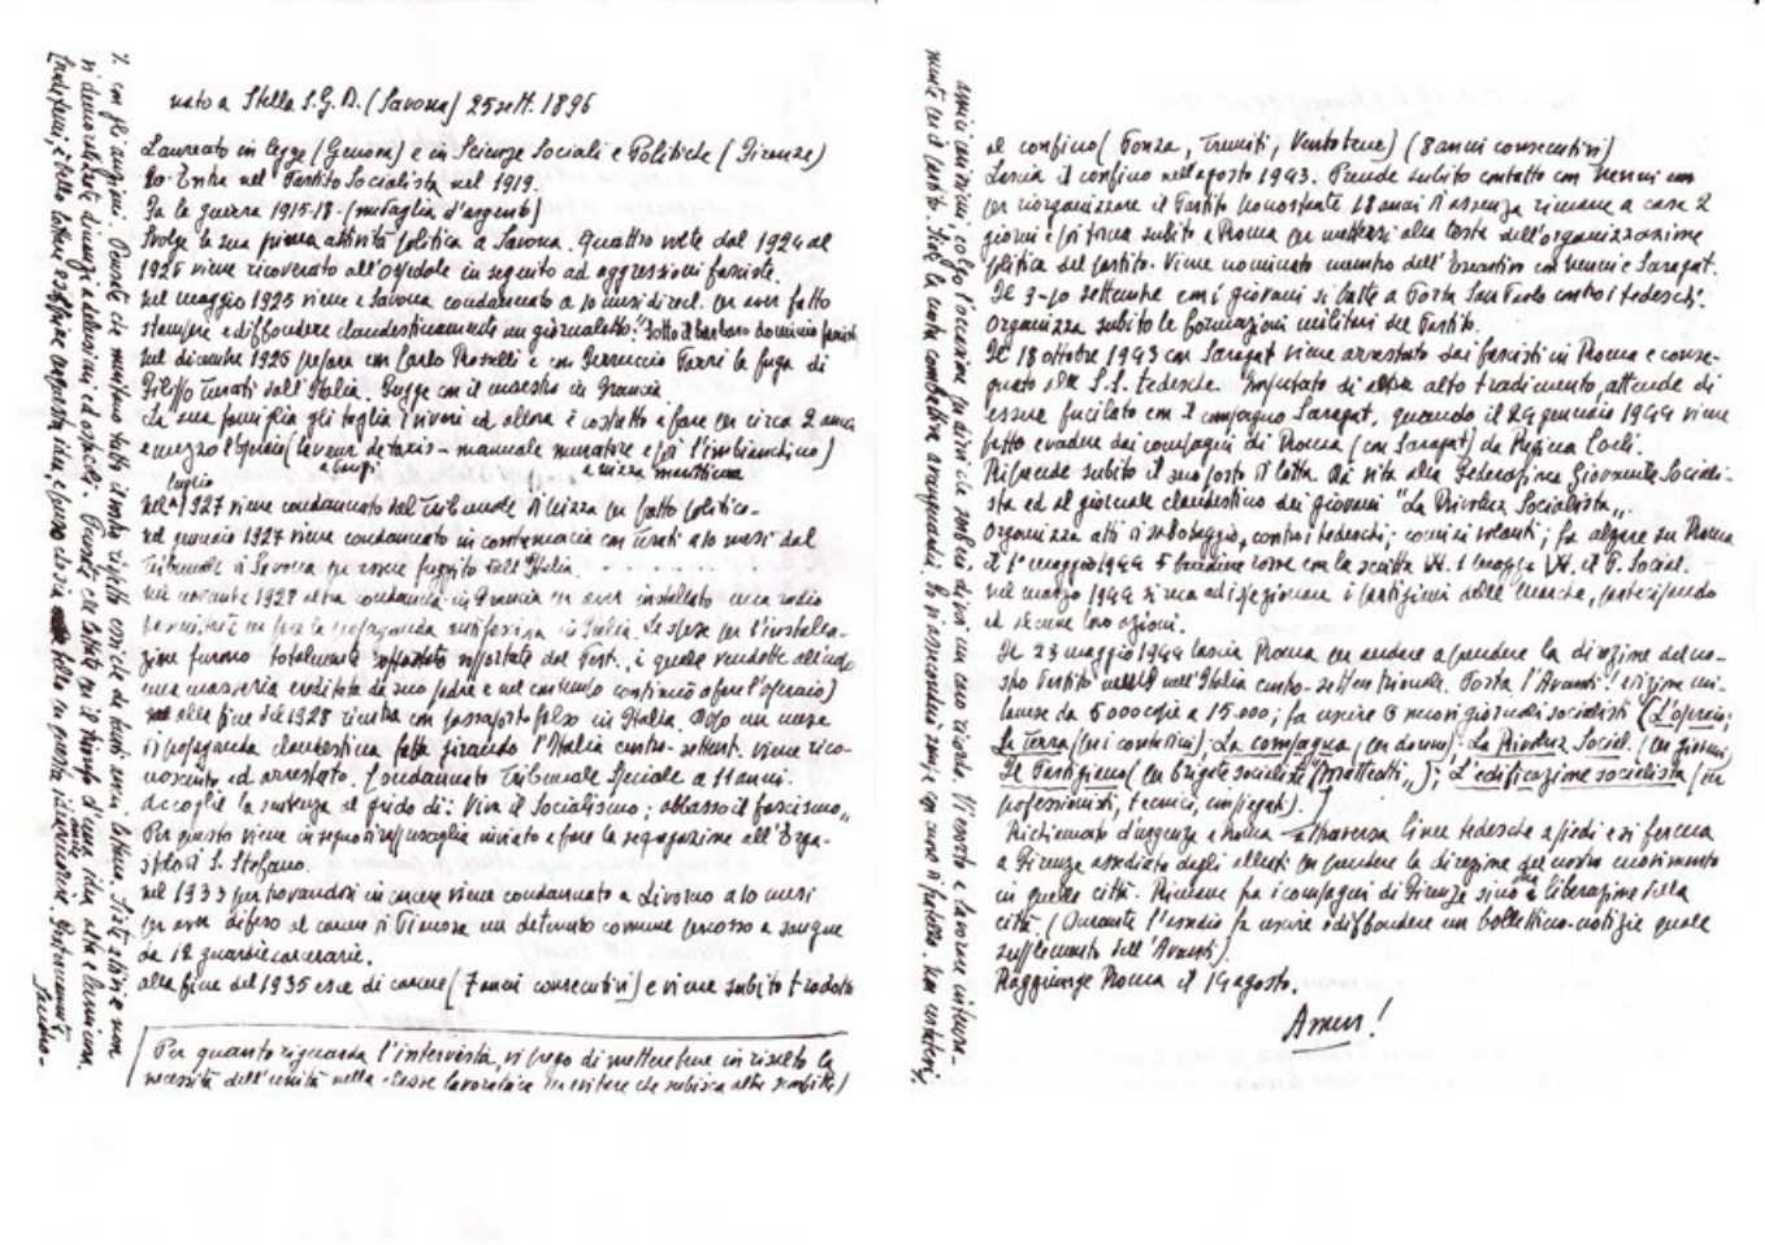 nato a Stella S.G.B. (Savona) 25 sett. 1896
Laureato in legge (Genova) e in Scienze Sociali e Politiche (Firenze)
Entra nel Partito Socialista nel 1919.
Fa la guerra 1915-18 - (medaglia d'argento)
Svolge la sua prima attività politica a Savona. Quattro volte dal 1924 al
1926 viene ricoverato all'ospedale in seguito ad aggressioni fasciste.
nel maggio 1925 viene a Savona condannato a 10 mesi di recl. per aver fatto
stampare e diffondere clandestinamente un giornaletto: "Sotto il barbaro dominio fascista
nel dicembre 1926 prepara con Carlo Rosselli e con Ferruccio Parri la fuga di
Filippo Turati dall'Italia. Fugge con il maestro in Francia.
La sua famiglia gli taglia i viveri ed allora è costretto a fare per circa 2 anni
e mezzo l'operaio (laveur de taxis - manuale muratore e poi l'imbianchino)
a Parigi a Nizza
luglio
nel 1927 viene condannato dal Tribunale di Nizza per fatto politico -
nel gennaio 1927 viene condannato in contumacia con Turati a 10 mesi dal
Tribunale di Savona per essere fuggito dall'Italia.
nel novembre 1928 altra condanna in Francia per aver installato una radio
per la propaganda antifascista in Italia. Le spese per l'installa-
zione furono totalmente sopportate dal Pert., il quale vendette all'uopo
una masseria ereditata da suo padre e nel contempo continuò a fare l'operaio)
alla fine del 1928 rientra con passaporto falso in Italia. Dopo un mese
di propaganda clandestina fatta girando l'Italia centro-settent. viene rico-
nosciuto ed arrestato. Condannato Tribunale Speciale a 11 anni.
Accoglie la sentenza al grido di: Viva il Socialismo; abbasso il fascismo„
Per questo viene in segno di rappresaglia inviato a fare la segregazione all'Erga-
stolo di S. Stefano.
nel 1933 pur trovandosi in carcere viene condannato a Livorno a 10 mesi
per aver difeso al carcere di Pianosa un detenuto comune percosso a sangue
da 12 guardie carcerarie.
alla fine del 1935 esce di carcere (7 anni consecutivi) e viene subito tradotto
Per quanto riguarda l'intervista, vi prego di mettere bene in risalto la
necessità dell'unità nella classe lavoratrice per evitare che subisca altre sconfitte)
con gli anziani. Pensate che meritano tutto il vostro rispetto Siate attivi e non
vi demoralizzate dinanzi a delusioni ed ostacoli. Pensate che lottate per il trionfo d'una idea alta e luminosa.
è bello lottare Fraternamente
Sandro -
al confino (Ponza, Tremiti, Ventotene) (8 anni consecutivi)
Lascia il confino nell'agosto 1943. Prende subito contatto con Nenni
per riorganizzare il Partito nonostante 18 anni d'assenza rimane a casa 2
giorni e poi torna subito a Roma per mettersi alla testa dell'organizzazione
politica del partito. Viene nominato membro dell'Esecutivo con Nenni e Saragat.
Il 9-10 settembre con i giovani si batte a Porta San Paolo contro i tedeschi.
Organizza subito le formazioni militari del Partito.
Il 18 ottobre 1943 con Saragat viene arrestato dai fascisti in Roma e conse-
gnato alle S.S. tedesche. Imputato di alto tradimento, attende di
essere fucilato con il compagno Saragat, quando il 24 gennaio 1944 viene
fatto evadere dai compagni di Roma (con Saragat) da Regina Coeli.
Riprende subito il suo posto di lotta. Dà vita alla Federazione Giovanile Sociali-
sta ed al giornale clandestino dei giovani "La Rivoluz Socialista„.
Organizza atti di sabotaggio, contro i tedeschi; comizi volanti; fa alzare su Roma
il 1° maggio 1944 5 bandiere rosse con la scritta W. 1 maggio W. il P. Social.
nel marzo 1944 si reca ad ispezionare i partigiani delle Marche, partecipando
ad alcune loro azioni.
Il 23 maggio 1944 lascia Roma per andare a prendere la direzione del no-
stro Partito nell'Italia centro-settentrionale. Porta l'Avanti! edizione mi-
lanese da 5000 copie a 15.000; fa uscire 6 nuovi giornali socialisti (L'operaio;
La Terra (per i contadini); La compagna, (per donne); La Rivoluz Social. (per giovani)
Il Partigiano (per brigate socialiste "Matteotti„); L'edificazione socialista (per
professionisti, tecnici, impiegati).)
Richiamato d'urgenza a Roma attraversa linee tedesche a piedi e si ferma
a Firenze assediata dagli alleati per prendere la direzione del nostro movimento
in quella città. Rimane fra i compagni di Firenze sino a liberazione della
città. (Durante l'assedio fa uscire e diffondere un bollettino-notizie quale
supplemento dell'Avanti).
Raggiunge Roma il 14 agosto.
Amen!
amici carissimi, colgo l'occasione per dirvi che serberò di voi un caro ricordo. Vi esorto a lavorare intensa-
mente per il partito.